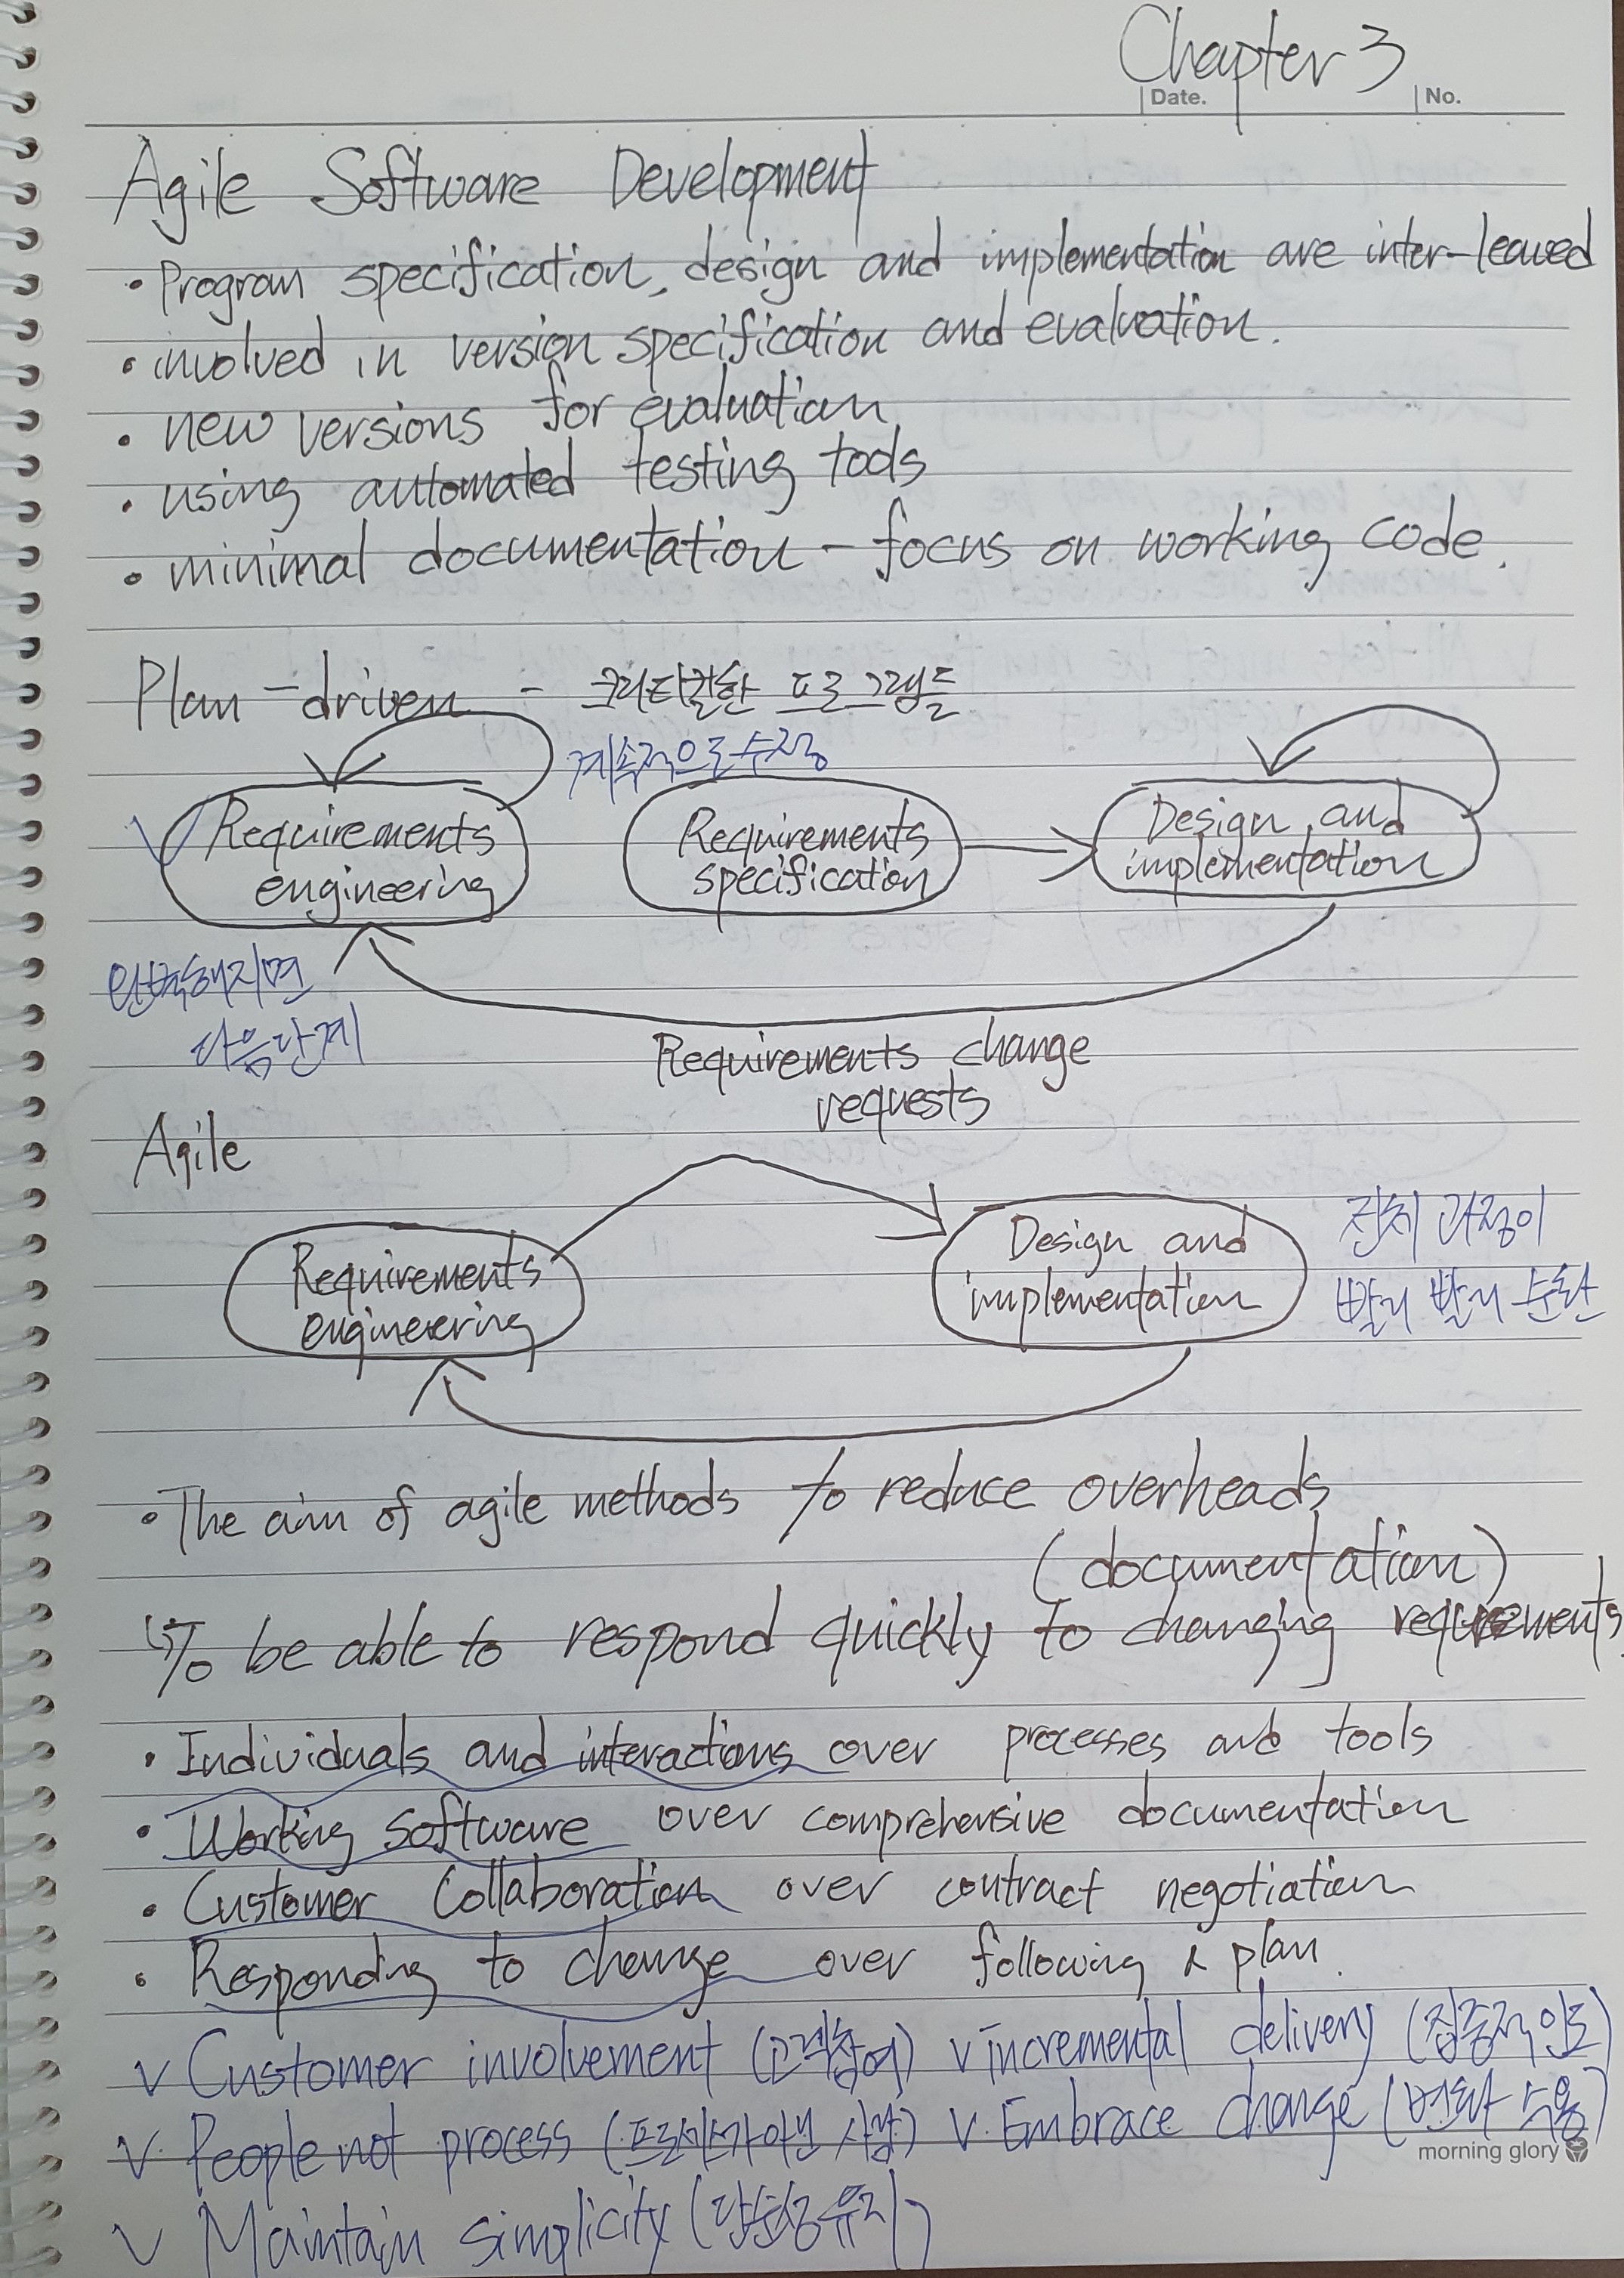 Chapter 3
Date.
No.
Agile Software Development
• Program specification, design and implementation are inter-leaved
• involved in version specification and evaluation.
• new versions for evaluation
• using automated testing tools
• minimal documentation - focus on working code.
Plan-driven - 크리티컬한 프로그램들
계속적으로 수정
V Requirements
engineering
Requirements
specification
Design and
implementation
완벽해지면
다음단계
Requirements change
requests
Agile
Requirements
engineering
Design and
implementation
전체 과정이
빨리 빨리 순환
• The aim of agile methods to reduce overheads
(documentation)
↳ To be able to respond quickly to changing requirements.
• Individuals and interactions over processes and tools
• Working software over comprehensive documentation
• Customer Collaboration over contract negotiation
• Responding to change over following a plan.
V Customer involvement (고객참여) V incremental delivery (점증적 인도)
V. People not process (프로세스가 아닌 사람) V. Embrace change (변화 수용)
morning glory
V Maintain simplicity (단순성 유지)